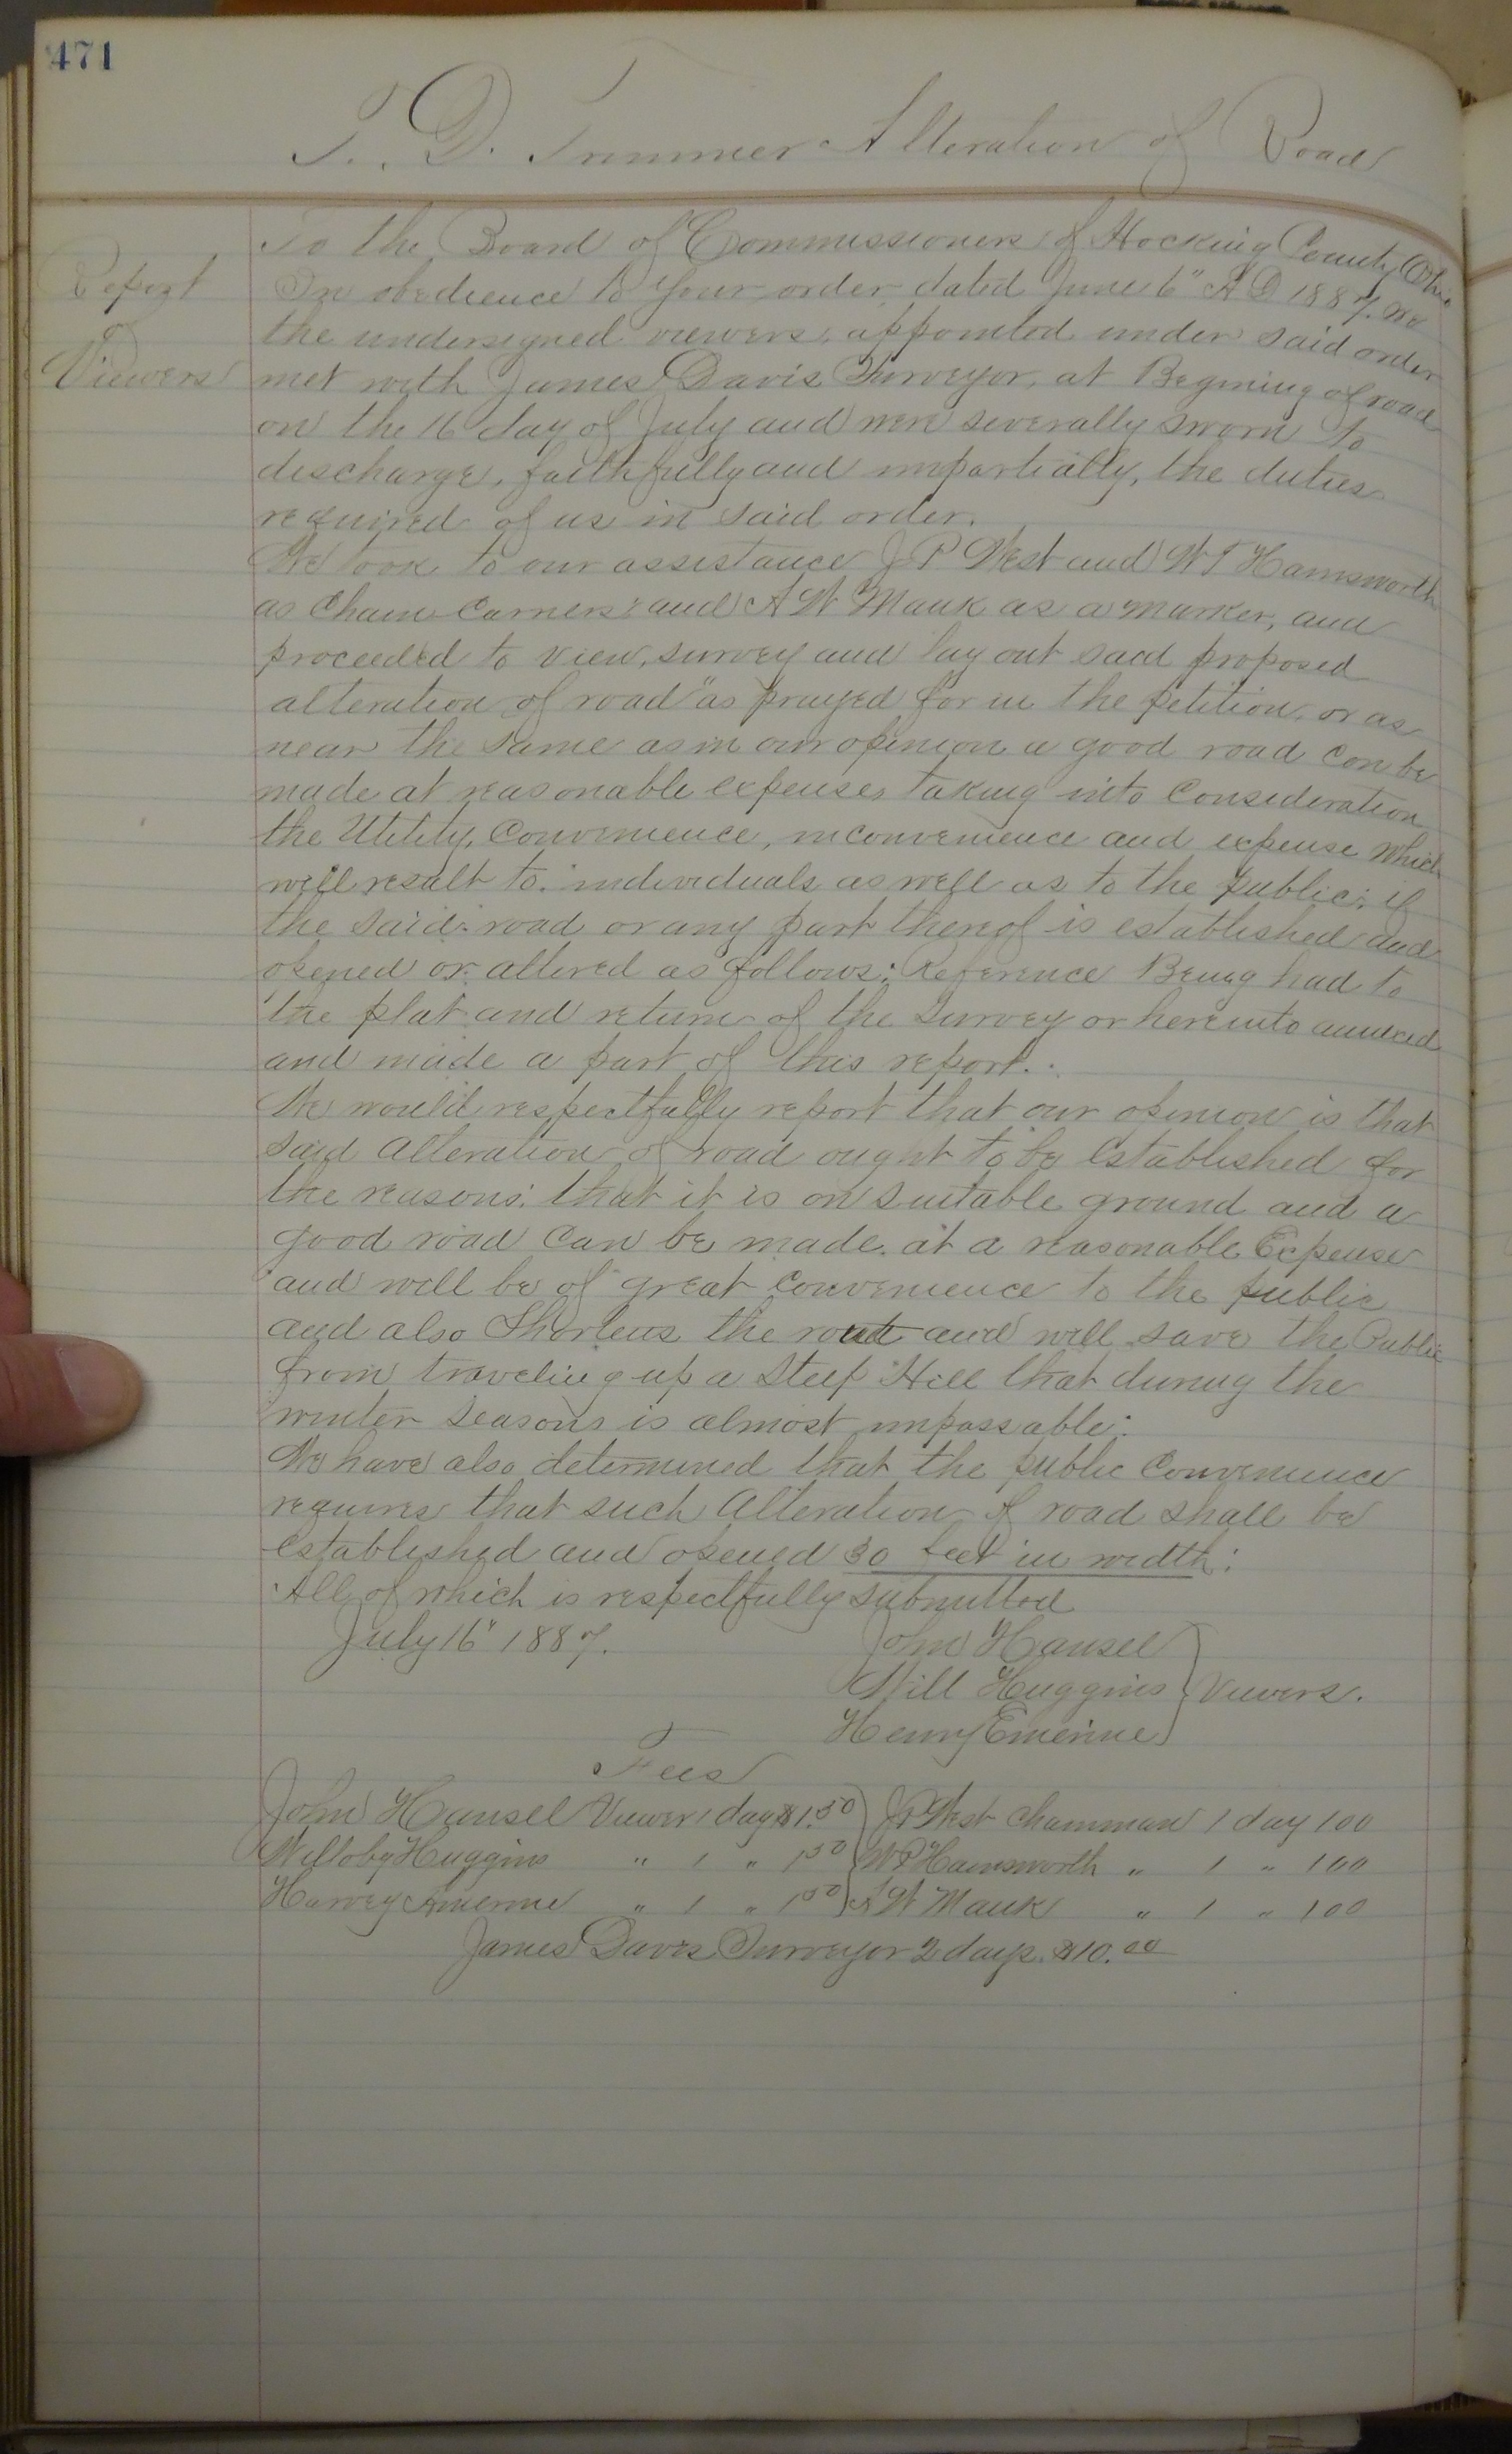 471
T. D. Trimmer Alteration of Road
Report
of
Viewers
To the Board of Commissioners of Hocking County Ohio
In obedience to your order dated June 6" A D 1887. we
the undersigned viewers, appointed under said order
met with James Davis Surveyor, at Begining of road
on the 16 day of July and were severally sworn to
discharge, faithfully and impartially, the duties
required of us in said order.
We took to our assistance J P West and W T Hamsworth
as Chain Carriers: and A W Mauk as a marker, and
proceeded to view, survey and lay out said proposed
alteration of road "as prayed for in the petition, or as
near the same as in our opinion a good road can be
made at reasonable expense, taking into Consideration
the Utility, Convenience, inconvenience and expense which
will result to individuals as well as to the public; if
the said road or any part thereof is established and
opened or altered as follows: Reference Being had to
the plat and return of the Survey or hereinto annexed
and made a part of this report.
We would respectfully report that our opinion is that
said Alteration of road ought to be Established for
the reasons: that it is on suitable ground and a
good road can be made at a reasonable Expense
and will be of great Convenience to the public
and also Shortens the route and will save the Public
from traveling up a Steep Hill that during the
winter seasons is almost impassable:
We have also determined that the public Convenience
requires that such Alteration of road shall be
Established and opened 30 feet in width:
All of which is respectfully submitted
July 16" 1887.
John Hansel
Will Huggins } Viewers.
Henry Emerine
Fees
John Hansel Viewer 1 day $1.50 } J P West Chainman 1 day 100
Willoby Huggins " 1 " 150 } W P Hamsworth " 1 " 100
Harvey Amerine " 1 " 150 } A W Mauk " 1 " 100
James Davis Surveyor 2 days. $10.00